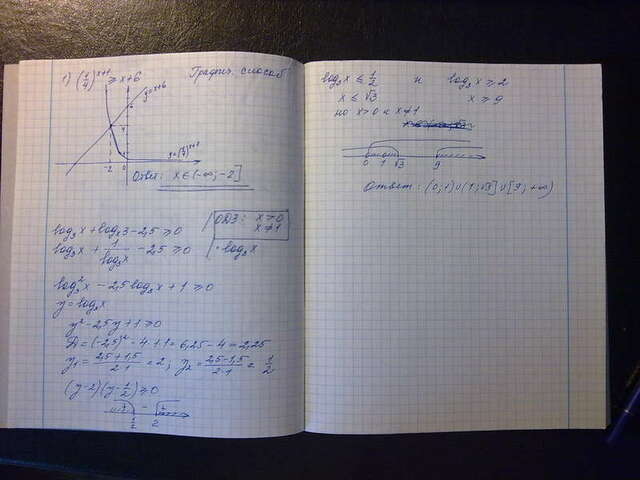 1) (1/4)^(x+1) ≥ x+6 Графич. способ
y=x+6
6
4
-2 0
y=(1/4)^(x+1)
Ответ: x∈(-∞; -2]
log₃x + logₓ3 - 2,5 ≥ 0
ОДЗ: x>0
x≠1
log₃x + 1/log₃x - 2,5 ≥ 0 | · log₃x
log₃²x - 2,5 log₃x + 1 ≥ 0
y = log₃x
y² - 2,5y + 1 ≥ 0
Д = (-2,5)² - 4·1·1 = 6,25 - 4 = 2,25
y₁ = (2,5+1,5)/(2·1) = 2; y₂ = (2,5-1,5)/(2·1) = 1/2
(y-2)(y-1/2) ≥ 0
1/2 2
log₃x ≤ 1/2 и log₃x ≥ 2
x ≤ √3 x ≥ 9
но x>0 и x≠1
0 1 √3 9
Ответ: (0; 1)∪(1; √3]∪[9; +∞)